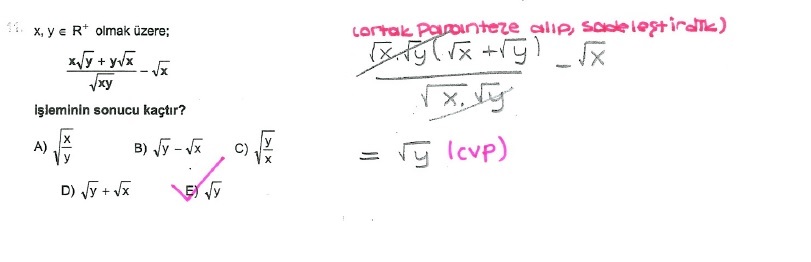 11. x, y ∈ R⁺ olmak üzere;
(x√y + y√x)/√xy − √x
işleminin sonucu kaçtır?
A) √(x/y) B) √y − √x C) √(y/x)
D) √y + √x E) √y
(ortak paranteze alıp, sadeleştirdik)
(√x.√y(√x + √y))/(√x.√y) − √x
= √y (cvp)